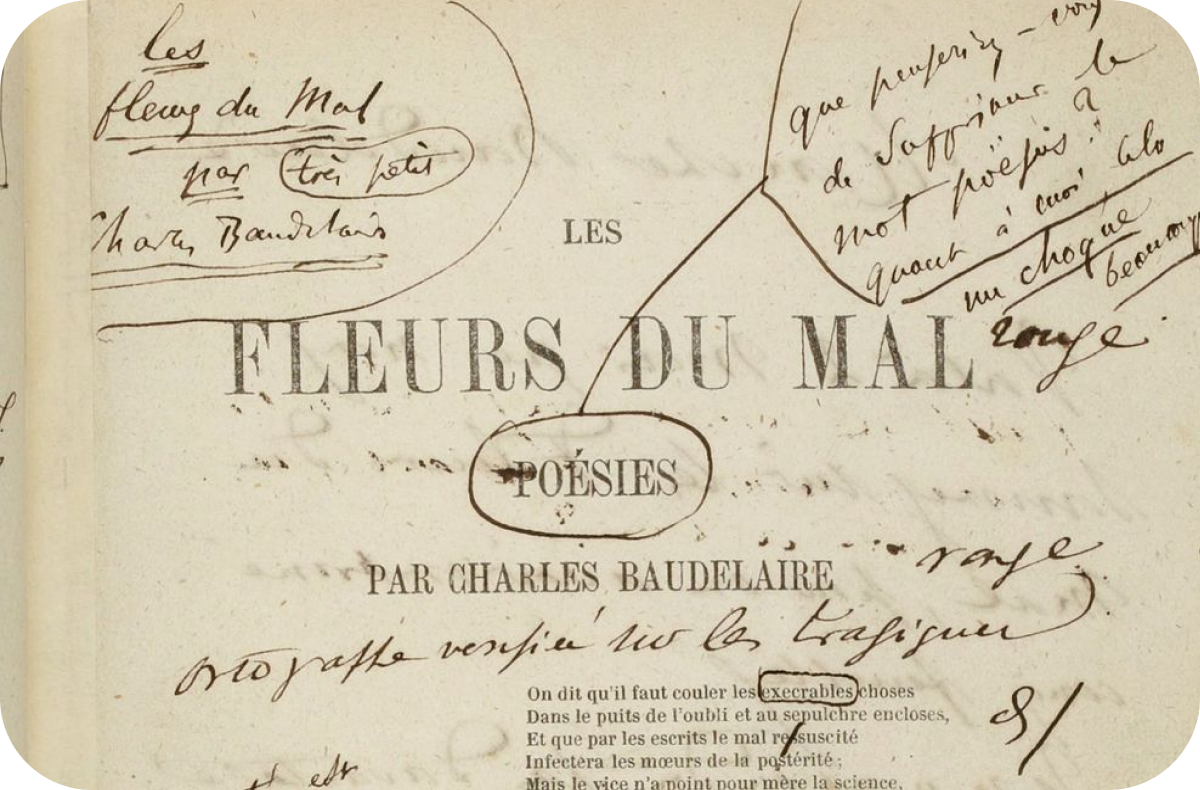 les
fleurs du Mal
par très petit
Charles Baudelaire
que penseriez-vous
de supprimer le
mot poësies ?
quant à moi cela
me choque
beaucoup
LES
FLEURS DU MAL
rouge
POÉSIES
PAR CHARLES BAUDELAIRE
rouge
ortographe verifiée sur les tragiques
On dit qu'il faut couler les execrables choses
Dans le puits de l'oubli et au sepulchre encloses,
Et que par les escrits le mal ressuscité
Infectera les mœurs de la postérité ;
Mais le vice n'a point pour mère la science,
est